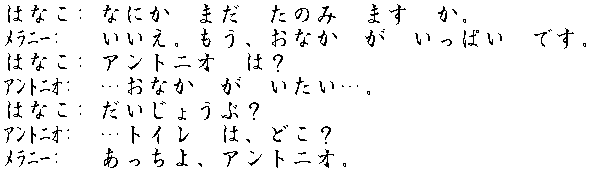 はなこ: なにか まだ たのみ ます か。
ﾒﾗﾆｰ: いいえ。もう、おなか が いっぱい です。
はなこ: アントニオ は?
ｱﾝﾄﾆｵ: …おなか が いたい…。
はなこ: だいじょうぶ?
ｱﾝﾄﾆｵ: …トイレ は、どこ?
ﾒﾗﾆｰ: あっちよ、アントニオ。